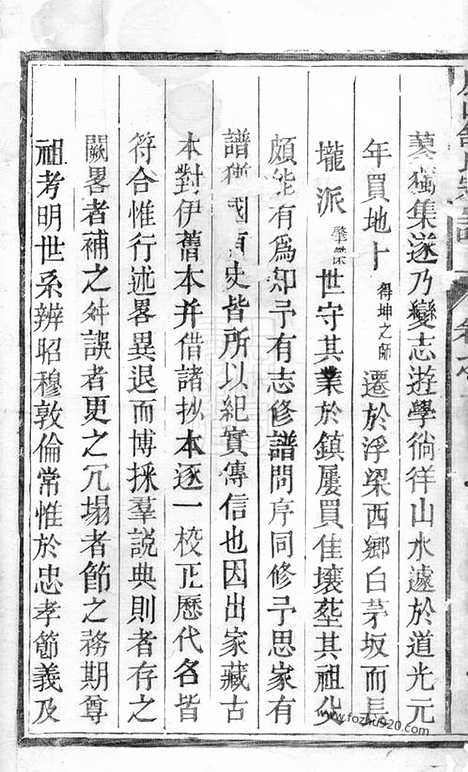 蔂獨集遂乃變志遊學徜徉山水遽於道光元
年買地卜得坤之師遷於浮梁西鄉白茅坂而長
壠派肇傑世守其業於鎮屢買佳壤塟其祖
頗能有爲知予有志修譜問序同修予思家有
譜猶國有史皆所以紀實傳信也因出家藏古
本對伊舊本并借諸抄本逐一校正歷代名皆
符合惟行述畧異退而博採羣說典則者存之
闕畧者補之舛誤者更之冗塌者節之務期尊
祖考明世系辨昭穆敦倫常惟於忠孝節義及
www.fozhu920.com